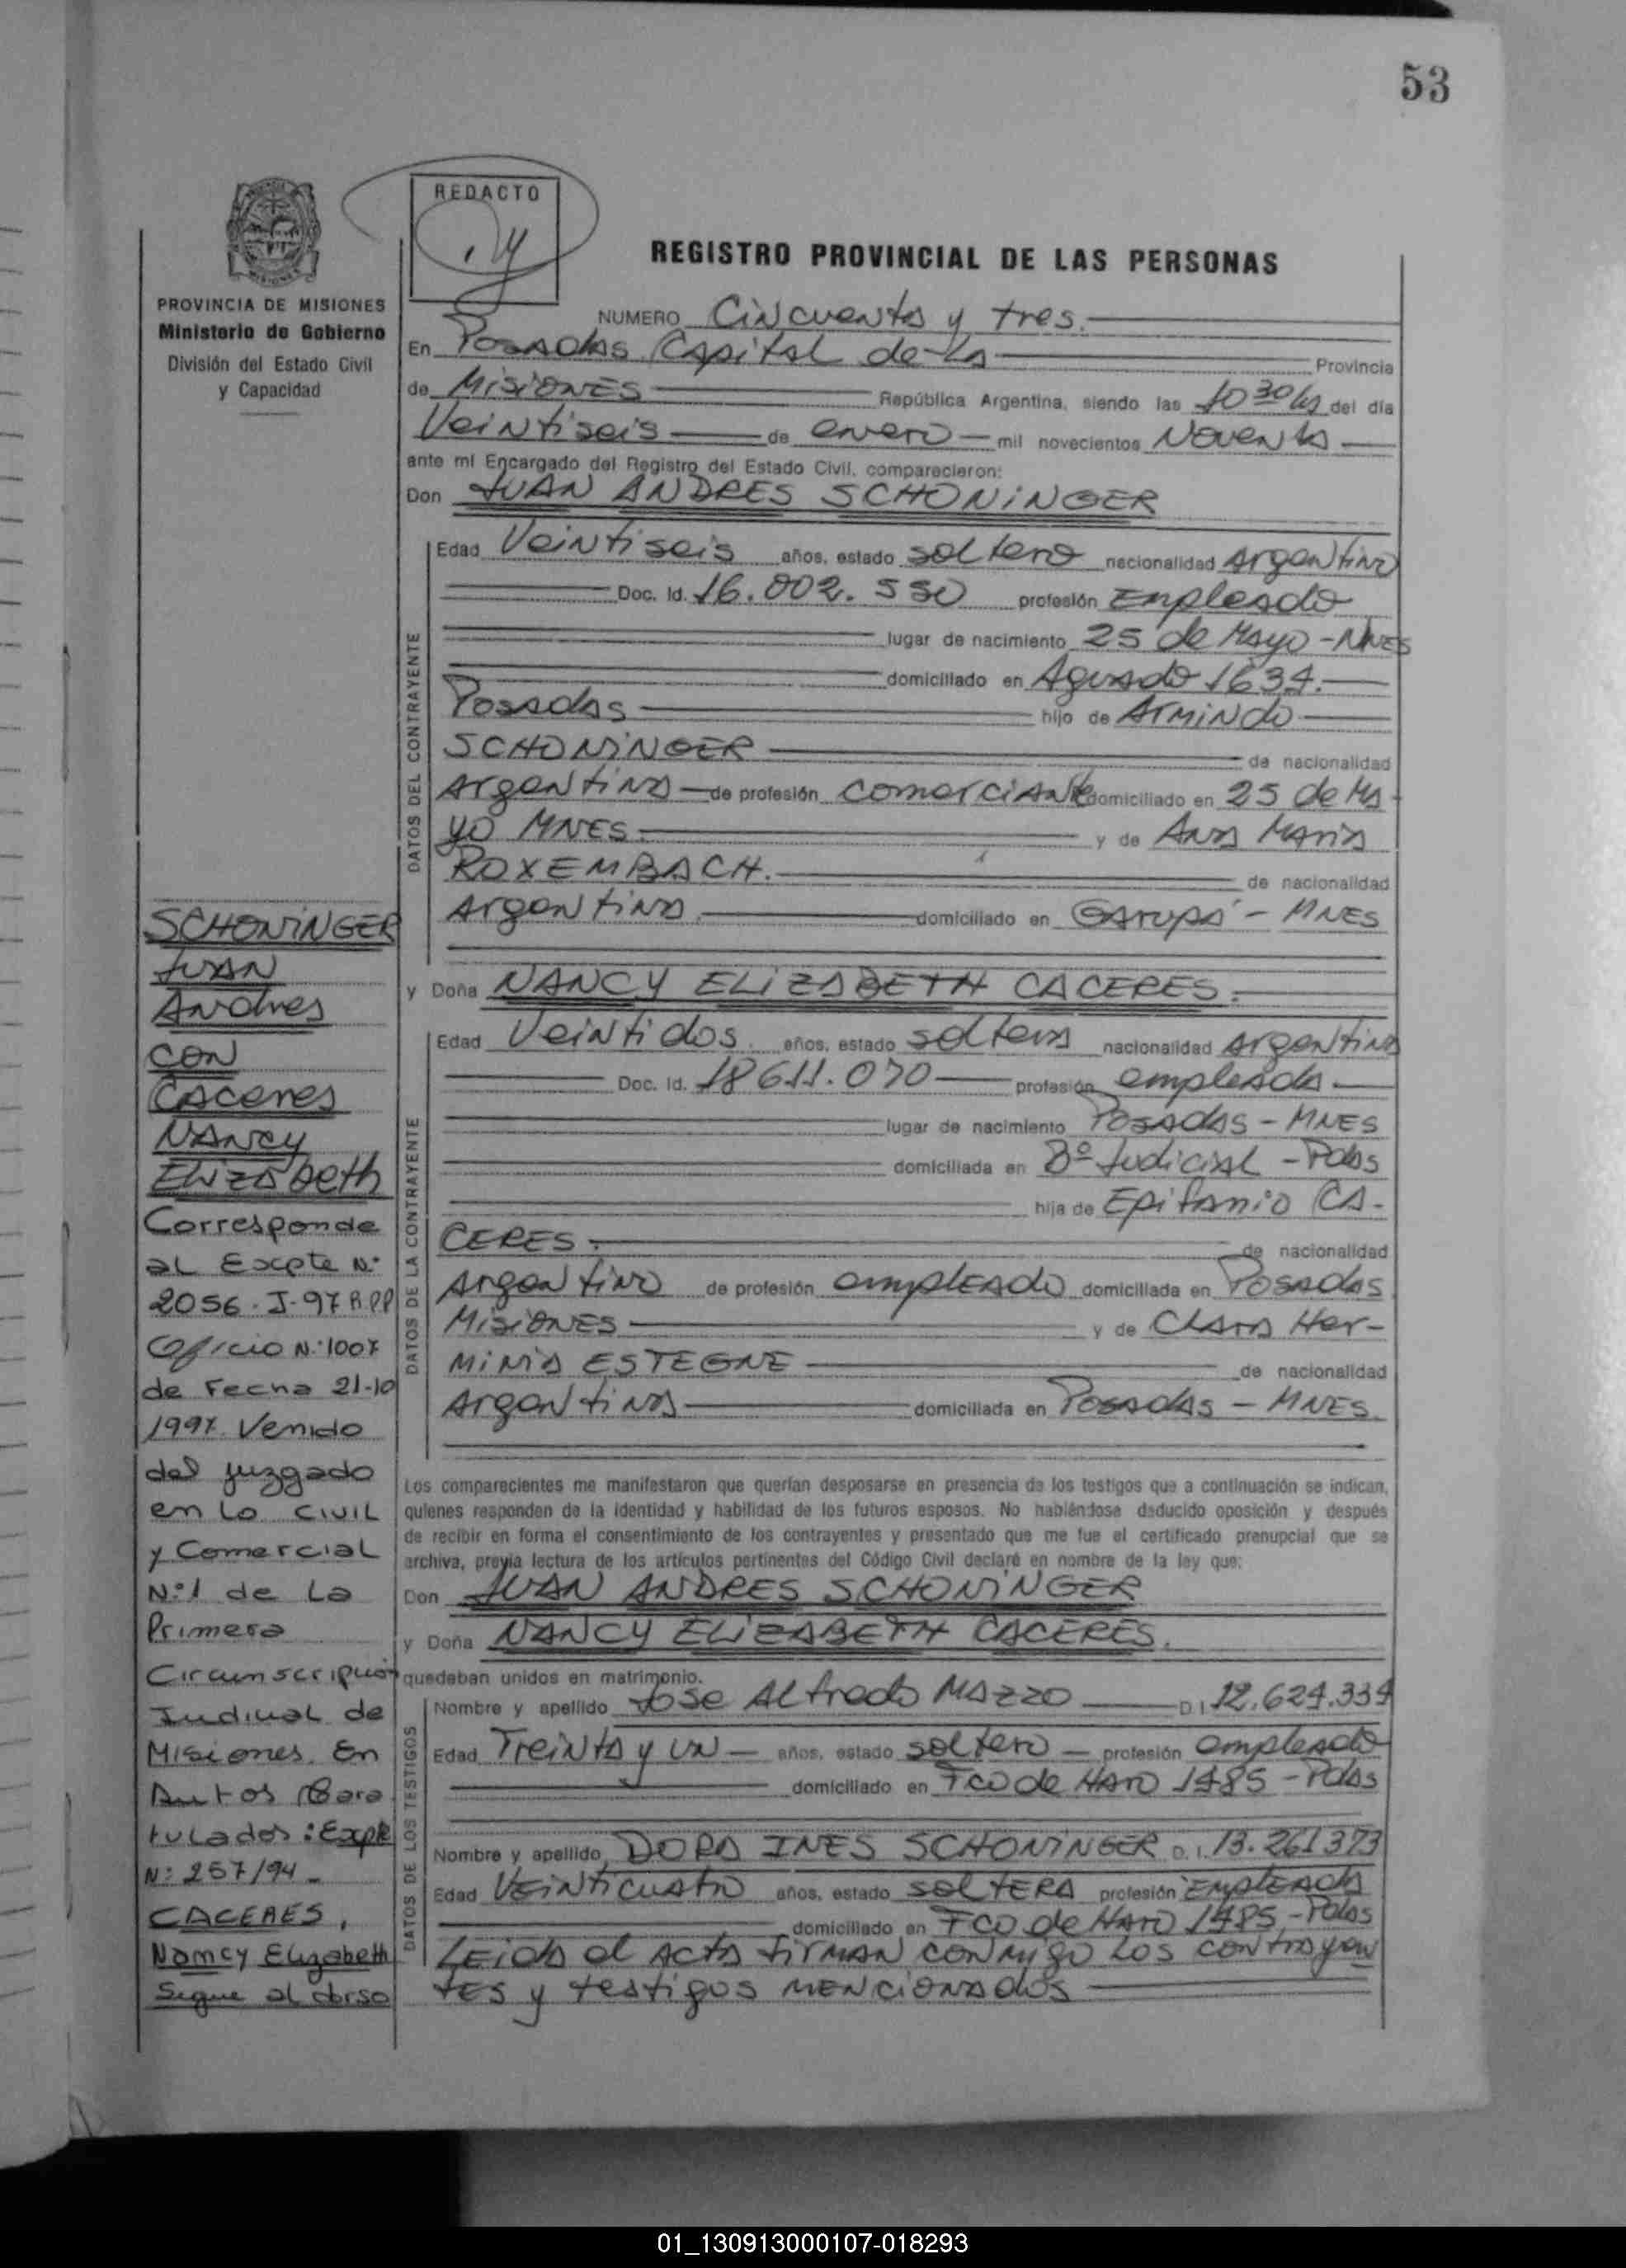 53
REDACTO
REGISTRO PROVINCIAL DE LAS PERSONAS
PROVINCIA DE MISIONES
Ministerio de Gobierno
División del Estado Civil
y Capacidad
NUMERO Cincuenta y tres.
En Posadas Capital de la Provincia
de Misiones República Argentina, siendo las 10 30 hs del día
Veintiseis de enero mil novecientos Noventa
ante mí Encargado del Registro del Estado Civil, comparecieron:
Don JUAN ANDRES SCHONINGER
DATOS DEL CONTRAYENTE
Edad Veintiseis años, estado soltero nacionalidad Argentino
Doc. Id. 16.002.550 profesión Empleado
lugar de nacimiento 25 de Mayo - MNES
domiciliado en Aguado 1634.
Posadas hijo de Armindo
SCHONINGER de nacionalidad
Argentina de profesión comerciante domiciliado en 25 de Ma-
yo MNES. y de Ana Maria
ROXEMBACH. de nacionalidad
Argentina. domiciliado en Garupá - MNES
y Doña NANCY ELIZABETH CACERES.
DATOS DE LA CONTRAYENTE
Edad Veintidos. años, estado soltera nacionalidad Argentina
Doc. Id. 18611.070 profesión empleada
lugar de nacimiento Posadas - MNES
domiciliada en Bº Judicial - Pdas
hija de Epifanio CA-
CERES. de nacionalidad
Argentino de profesión empleado domiciliada en Posadas
Misiones y de Clara Her-
minia ESTEGNE de nacionalidad
Argentina domiciliada en Posadas - MNES.
Los comparecientes me manifestaron que querían desposarse en presencia de los testigos que a continuación se indican,
quienes responden de la identidad y habilidad de los futuros esposos. No habiéndose deducido oposición y después
de recibir en forma el consentimiento de los contrayentes y presentado que me fue el certificado prenupcial que se
archiva, previa lectura de los artículos pertinentes del Código Civil declaré en nombre de la ley que:
Don JUAN ANDRES SCHONINGER
y Doña NANCY ELIZABETH CACERES.
quedaban unidos en matrimonio.
DATOS DE LOS TESTIGOS
Nombre y apellido Jose Alfredo MAZZO D.I. 12.624.334
Edad Treinta y un años, estado soltero profesión empleado
domiciliado en Fco de Haro 1485 - Pdas
Nombre y apellido DORA INES SCHONINGER D.I. 13.261373
Edad VEINTICUATRO años, estado SOLTERA profesión EMPLEADA
domiciliado en Fco de Haro 1485 - Pdas
Leida el acta firman conmigo los contrayen
tes y testigos mencionados
SCHONINGER
JUAN
Andres
CON
Caceres
NANCY
Elizabeth
Corresponde
al Expte N.º
2056-J-97 R.P.P
Oficio N.º 1007
de Fecha 21-10
1997. Venido
del juzgado
en lo civil
y Comercial
N.º 1 de La
Primera
Circunscripción
Judicial de
Misiones. En
Autos Cara
tulados: Expte
N.º 257/94 -
CACERES,
Nancy Elizabeth
Segue al dorso
01_130913000107-018293